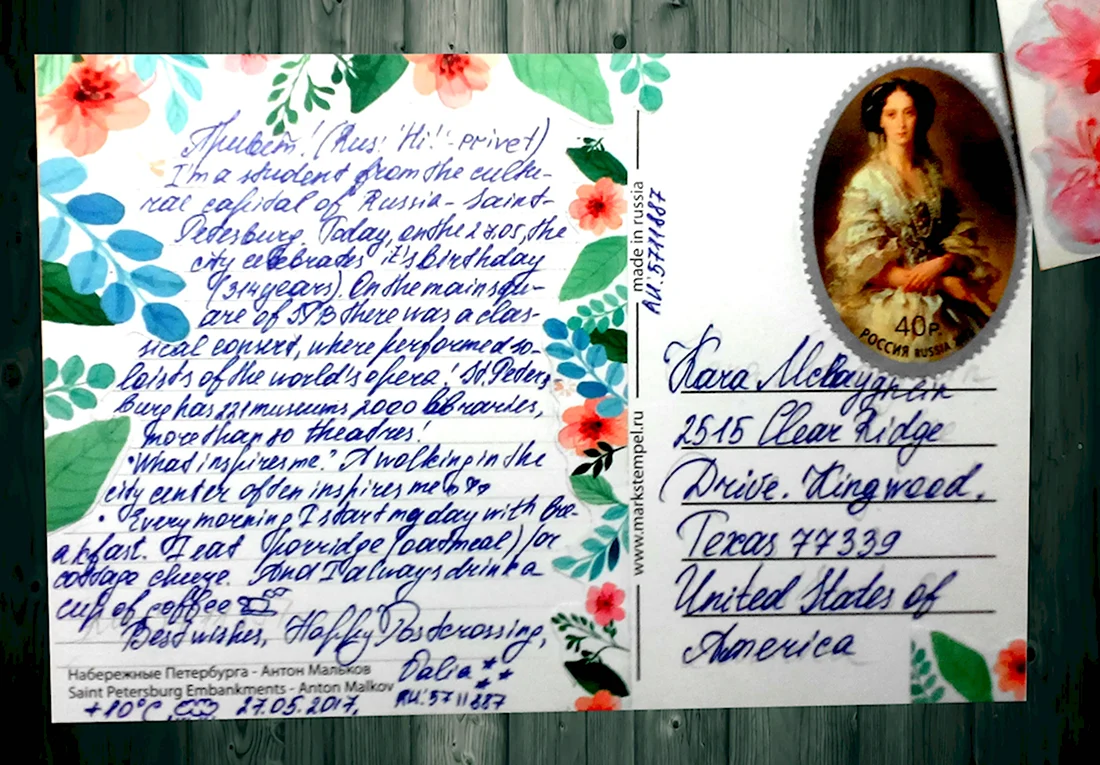 Привет! (Rus: 'Hi!' - privet)
I'm a student from the cultu-
ral capital of Russia - Saint-
Petersburg. Today, on the 27.05, the
city celebrates it's birthday
(314 years). On the main squ-
are of SPB there was a clas-
sical consert, where performed so-
loists of the world's opera! St. Peters
burg has 221 museums, 2000 libraries,
more than 80 theatres!
• "What inspires me?" A walking in the
city center often inspires me
• Every morning I start my day with bre-
akfast. I eat porridge (oatmeal) or
cottage cheeze. And I always drink a
cup of coffee
Best wishes, Happy Postcrossing,
Dalia
Набережные Петербурга - Антон Мальков
Saint Petersburg Embankments - Anton Malkov
RU-5711887
+10°C, 27.05.2017,
made in russia
www.markstempel.ru
RU-5711887
40р.
РОССИЯ RUSSIA
Kara
2515 Clear Ridge
Drive. Kingwood,
Texas 77339
United States of
America